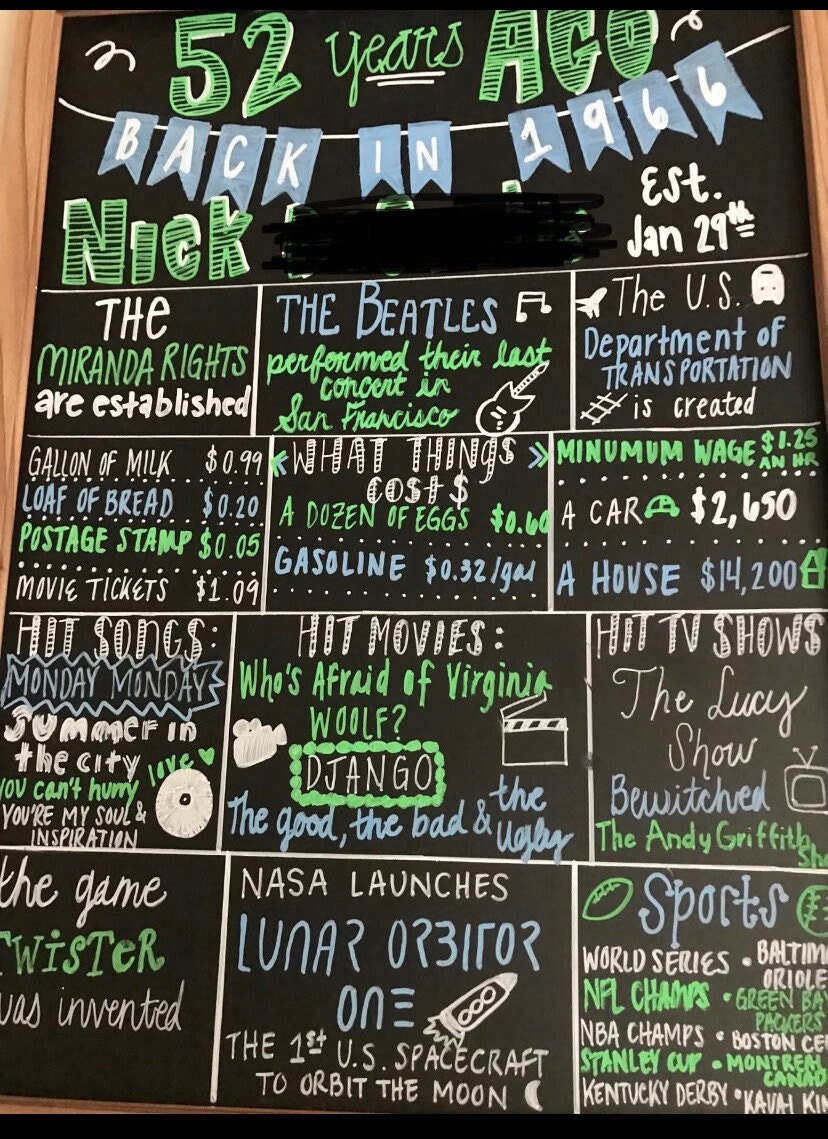 52 years AGO
BACK IN 1966
Nick
Est.
Jan 29th
THE
MIRANDA RIGHTS
are established
THE BEATLES
performed their last
concert in
San Francisco
The U.S.
Department of
TRANSPORTATION
is created
GALLON OF MILK $0.99
LOAF OF BREAD $0.20
POSTAGE STAMP $0.05
MOVIE TICKETS $1.09
WHAT THINGS
COST $
A DOZEN OF EGGS $0.60
GASOLINE $0.32/gal
MINUMUM WAGE $1.25
AN HR
A CAR $2,650
A HOUSE $14,200
HIT SONGS:
MONDAY MONDAY
Summer in
the city
you can't hurry love
YOU'RE MY SOUL &
INSPIRATION
HIT MOVIES:
Who's Afraid of Virginia
WOOLF?
DJANGO
The good, the bad & the
ugly
HIT TV SHOWS
The Lucy
Show
Bewitched
The Andy Griffith
Sh
the game
TWISTER
was invented
NASA LAUNCHES
LUNAR ORBITOR
ONE
THE 1st U.S. SPACECRAFT
TO ORBIT THE MOON
Sports
WORLD SERIES • BALTIM
ORIOLE
NFL CHAMPS • GREEN BA
PACKERS
NBA CHAMPS • BOSTON CE
STANLEY CUP • MONTREAL
CANAD
KENTUCKY DERBY • KAUAI KIN